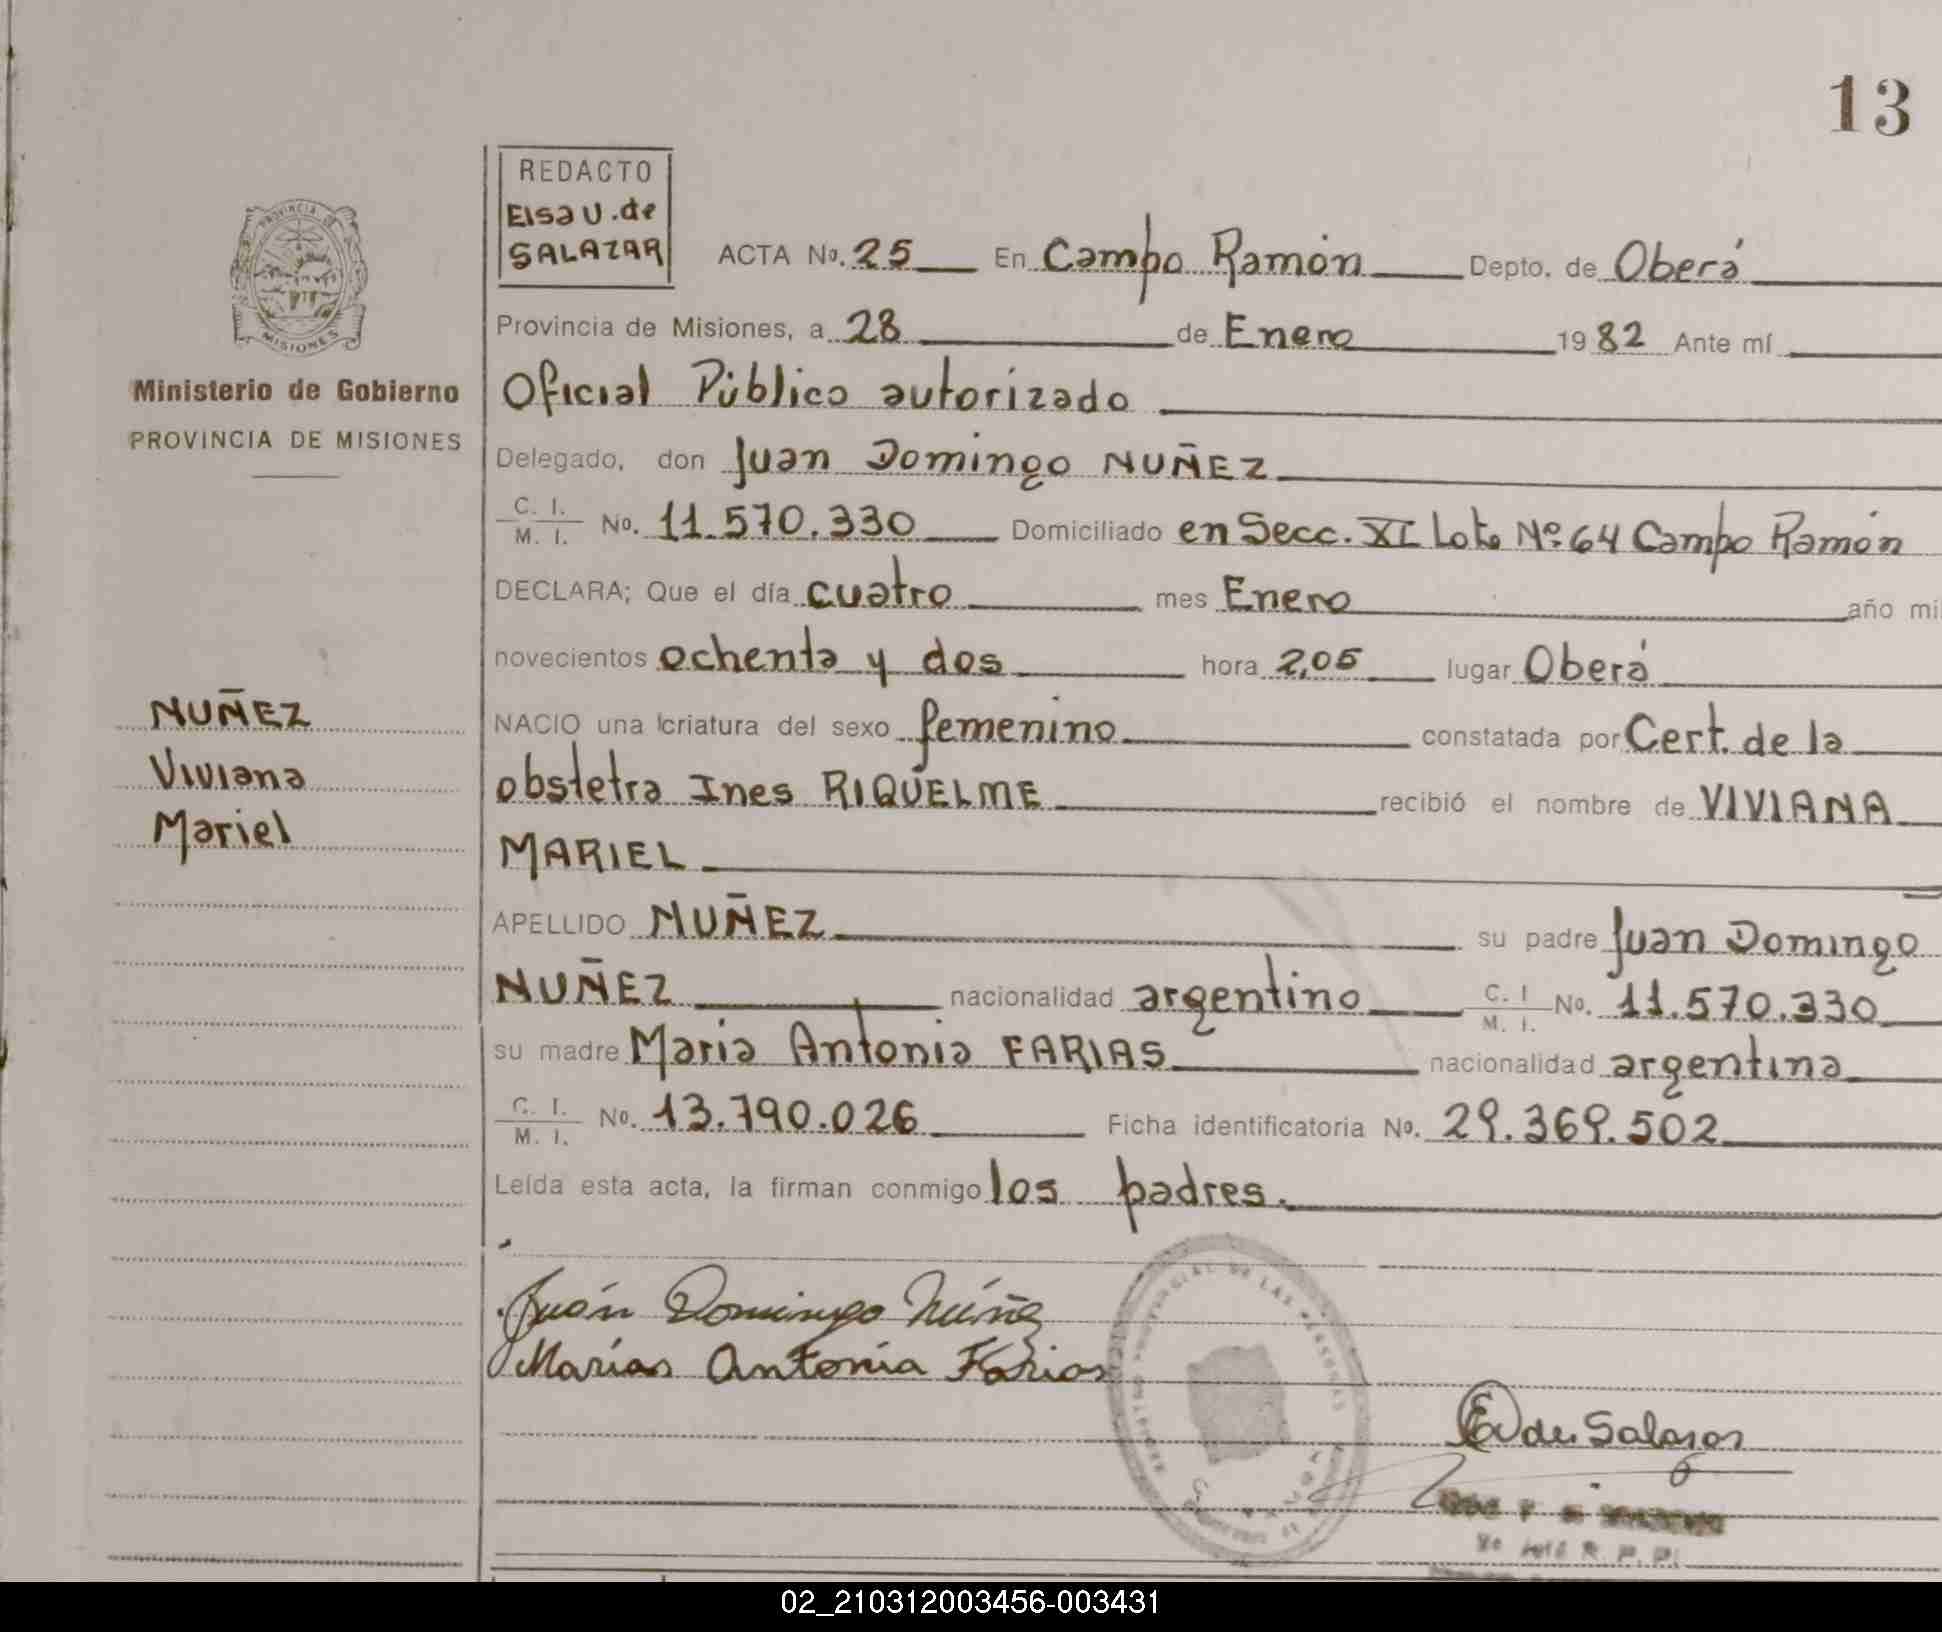 13
REDACTO
Elsa U. de
SALAZAR
PROVINCIA DE
MISIONES
Ministerio de Gobierno
PROVINCIA DE MISIONES
NUÑEZ
Viviana
Mariel
ACTA No. 25 En Campo Ramón Depto. de Oberá
Provincia de Misiones, a 28 de Enero 1982 Ante mí
Oficial Público autorizado
Delegado, don Juan Domingo NUÑEZ
C. I. / M. I. No. 11.570.330 Domiciliado en Secc. XI Lote Nº 64 Campo Ramón
DECLARA; Que el día cuatro mes Enero año mil
novecientos ochenta y dos hora 2,05 lugar Oberá
NACIO una criatura del sexo femenino constatada por Cert. de la
obstetra Ines RIQUELME recibió el nombre de VIVIANA
MARIEL
APELLIDO NUÑEZ su padre Juan Domingo
NUÑEZ nacionalidad argentino C. I / M. I. No. 11.570.330
su madre Maria Antonia FARIAS nacionalidad argentina
C. I. / M. I. No. 13.790.026 Ficha identificatoria No. 29.369.502
Leída esta acta, la firman conmigo los padres.
Juán Domingo Núñez
Marías Antonia Farias
DE LAS PERSONAS
E U de Salazar
02_210312003456-003431